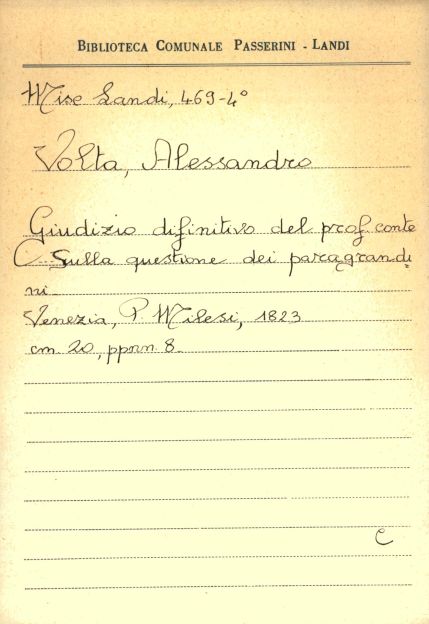 BIBLIOTECA COMUNALE PASSERINI - LANDI
Misc Landi, 469-4°
Volta, Alessandro
Giudizio difinitivo del prof. conte
C... Sulla questione dei paragrandi
ni.
Venezia, P. Milesi, 1823
cm. 20, ppnn. 8.
C